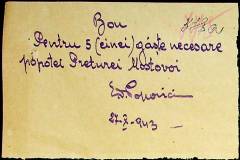 Bon
Pentru 5 (cinci) gâște necesare
popotei Preturei Mostovoi
Popovici
27-X-943